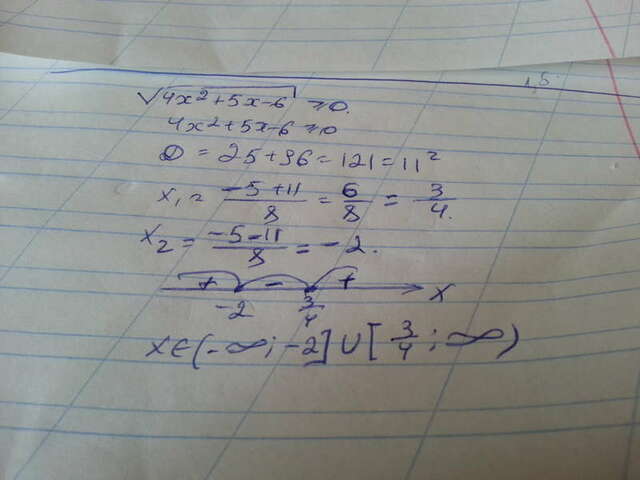 1,5
√4x²+5x-6 ≥0.
4x²+5x-6 ≥0
D = 25+96=121=11²
x₁ = -5+11/8 = 6/8 = 3/4.
x₂ = -5-11/8 = -2.
+ - + x
-2 3/4
x∈(-∞;-2]∪[3/4;∞)